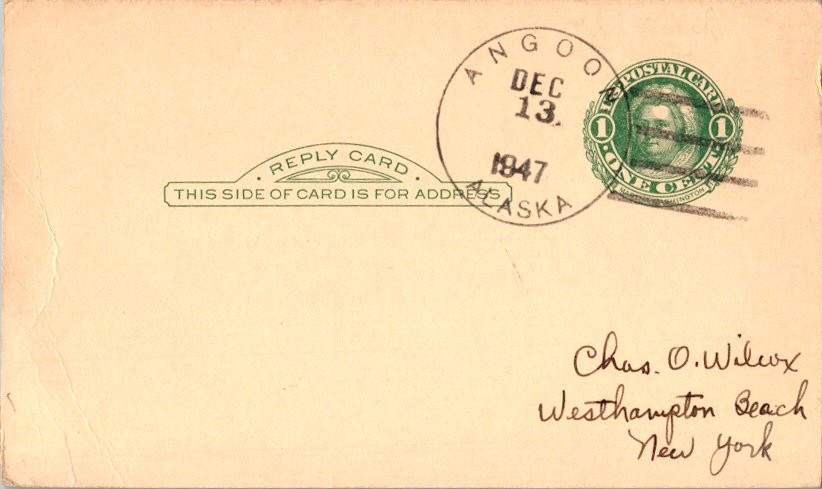 ANGOON
DEC
13
1947
ALASKA
U.S. POSTAL CARD
1 1
ONE CENT
MARTHA WASHINGTON
REPLY CARD
THIS SIDE OF CARD IS FOR ADDRESS
Chas. O. Wilcox
Westhampton Beach
New York